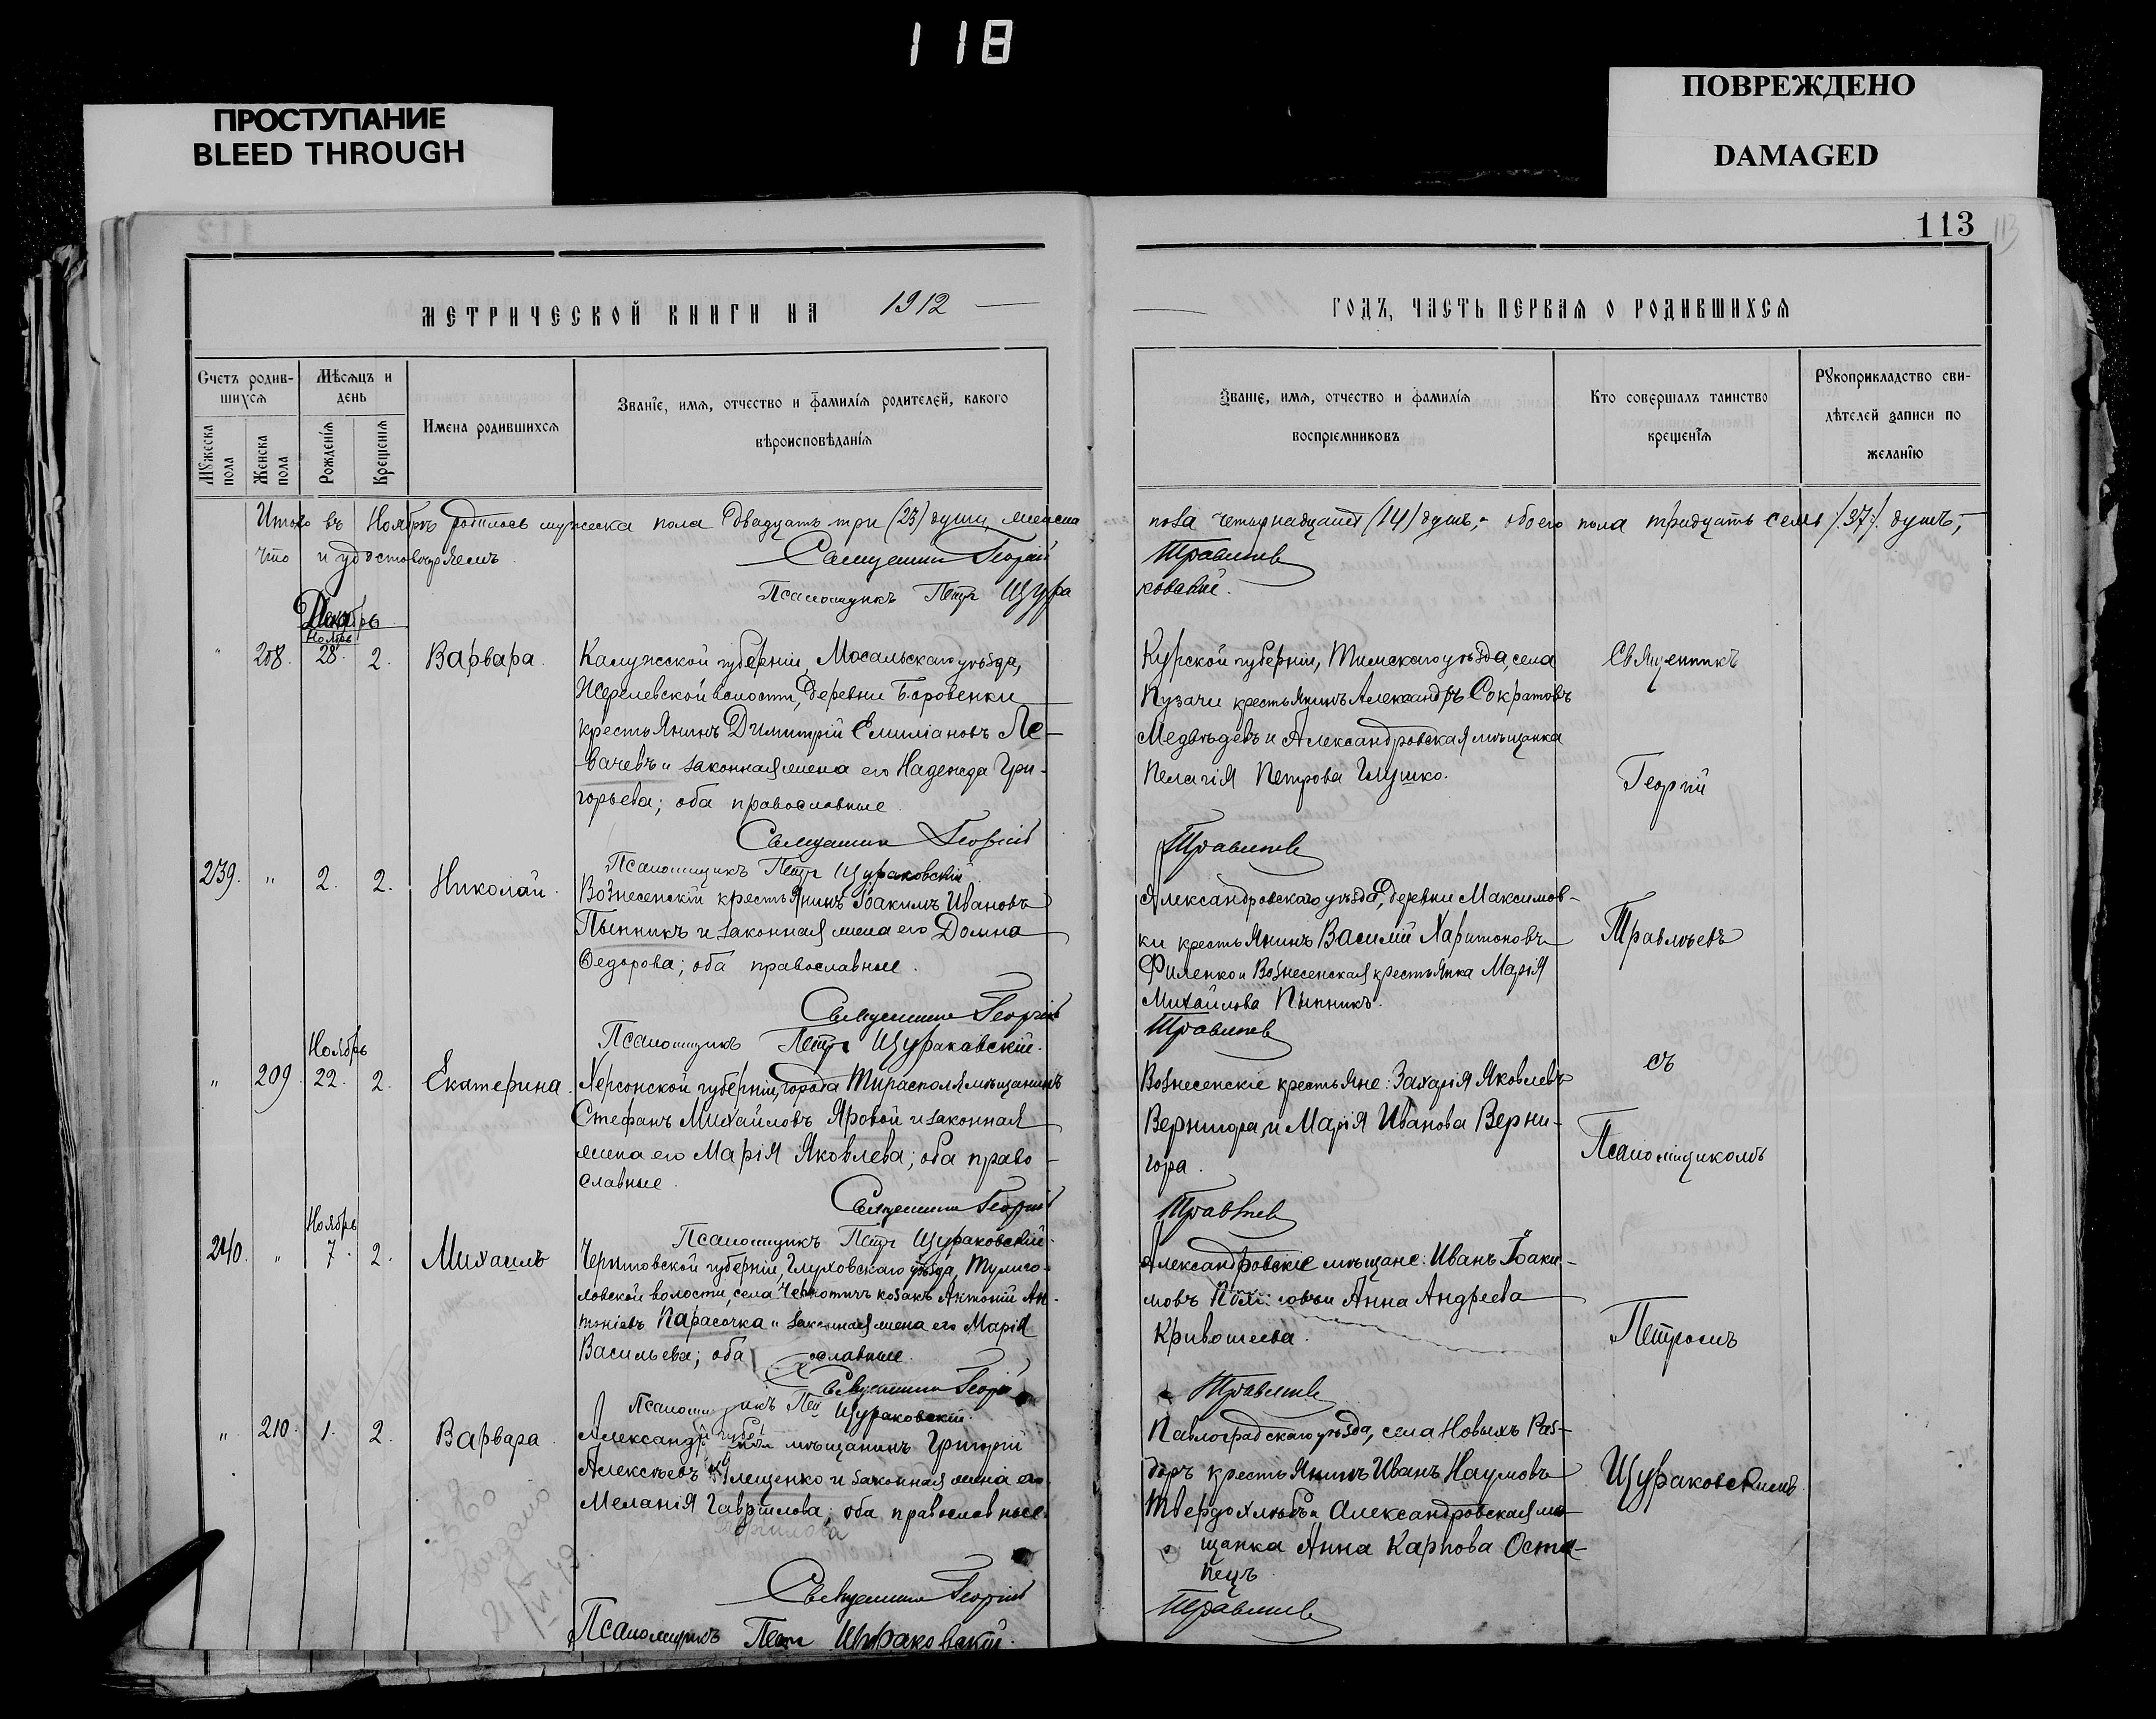 118
ПРОСТУПАНИЕ
BLEED THROUGH
ПОВРЕЖДЕНО
DAMAGED
113
МЕТРИЧЕСКОЙ КНИГИ НА 1912
ГОДЪ, ЧАСТЬ ПЕРВАЯ О РОДИВШИХСЯ
Счетъ родив-
шихся
Мужеска
пола
Женска
пола
Мѣсяцъ и
день
Рожденія
Крещенія
Имена родившихся
Званіе, имя, отчество и фамилія родителей, какого
вѣроисповѣданія
Званіе, имя, отчество и фамилія
воспріемниковъ
Кто совершалъ таинство
крещенія
Рукоприкладство сви-
дѣтелей записи по
желанію
Итого въ Ноябрѣ родилось мужеска пола двадцать три (23) души, женска
пола четырнадцать (14) душъ, обоего пола тридцать семь (37) душъ,
что и удостовѣряемъ
Священникъ Георгій
Травлѣевъ
Псаломщикъ Петръ Щура
ковскій.
Декабрь
Ноябрь
" 208. 28. 2. Варвара.
Калужской губерніи, Мосальскаго уѣзда,
Жерелевской волости, деревни Боровенки
крестьянинъ Димитрій Емиліановъ Ле-
вачевъ и законная жена его Надежда Гри-
горьева; оба православные.
Священникъ Георгій
Псаломщикъ Петръ Щураковскій.
Курской губерніи, Тимскаго уѣзда, села
Пузачи крестьянинъ Александръ Сократовъ
Медвѣдевъ и Александровская мѣщанка
Пелагія Петрова Глушко.
Травлѣевъ
239. " 2. 2. Николай.
Вознесенскій крестьянинъ Іоакимъ Ивановъ
Пынникъ и законная жена его Домна
Ѳедорова; оба православные.
Священникъ Георгій
Псаломщикъ Петръ Щураковскій.
Александровскаго уѣзда, деревни Максимов-
ки крестьянинъ Василій Харитоновъ
Филенко и Вознесенская крестьянка Марія
Михайлова Пынникъ.
Травлѣевъ
Ноябрь
" 209. 22. 2. Екатерина.
Херсонской губерніи, города Тирасполя мѣщанинъ
Стефанъ Михайловъ Яровой и законная
жена его Марія Яковлева; оба право-
славные.
Священникъ Георгій
Псаломщикъ Петръ Щураковскій.
Вознесенскіе крестьяне: Захарія Яковлевъ
Вернигора, и Марія Иванова Верни-
гора.
Травлѣевъ
Ноябрь
240. " 7. 2. Михаилъ
Черниговской губерніи, Глуховскаго уѣзда, Тулиго-
ловской волости, села Чернотичъ козакъ Антоній Ан-
тоніевъ Парасочка и законная жена его Марія
Васильева; оба ославные.
Священникъ Георг
Псаломщикъ Пет Щураковскій.
Александровскіе мѣщане: Иванъ Іоаки-
мовъ и Анна Андреева
Кривошеева.
Травлѣевъ
" 210. 1. 2. Варвара.
Александр мѣщанинъ Григорій
Алексѣевъ лещенко и законная жена его
Меланія Гавріилова; оба православные.
Гавриилова
Священникъ Георгій
Псаломщикъ Петръ Щураковскій.
Павлоградскаго уѣзда, села Новыхъ Раз-
доръ крестьянинъ Иванъ Наумовъ
Твердохлѣбъ и Александровская мѣ-
щанка Анна Карпова Оста-
пецъ.
Травлѣевъ
Священникъ
Георгій
Травлѣевъ
съ
Псаломщикомъ
Петромъ
Щураковскимъ.